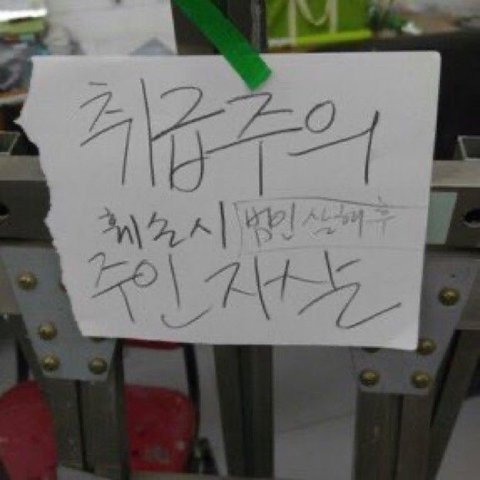 취급주의
훼손시 범인 살해 후
주인 자살